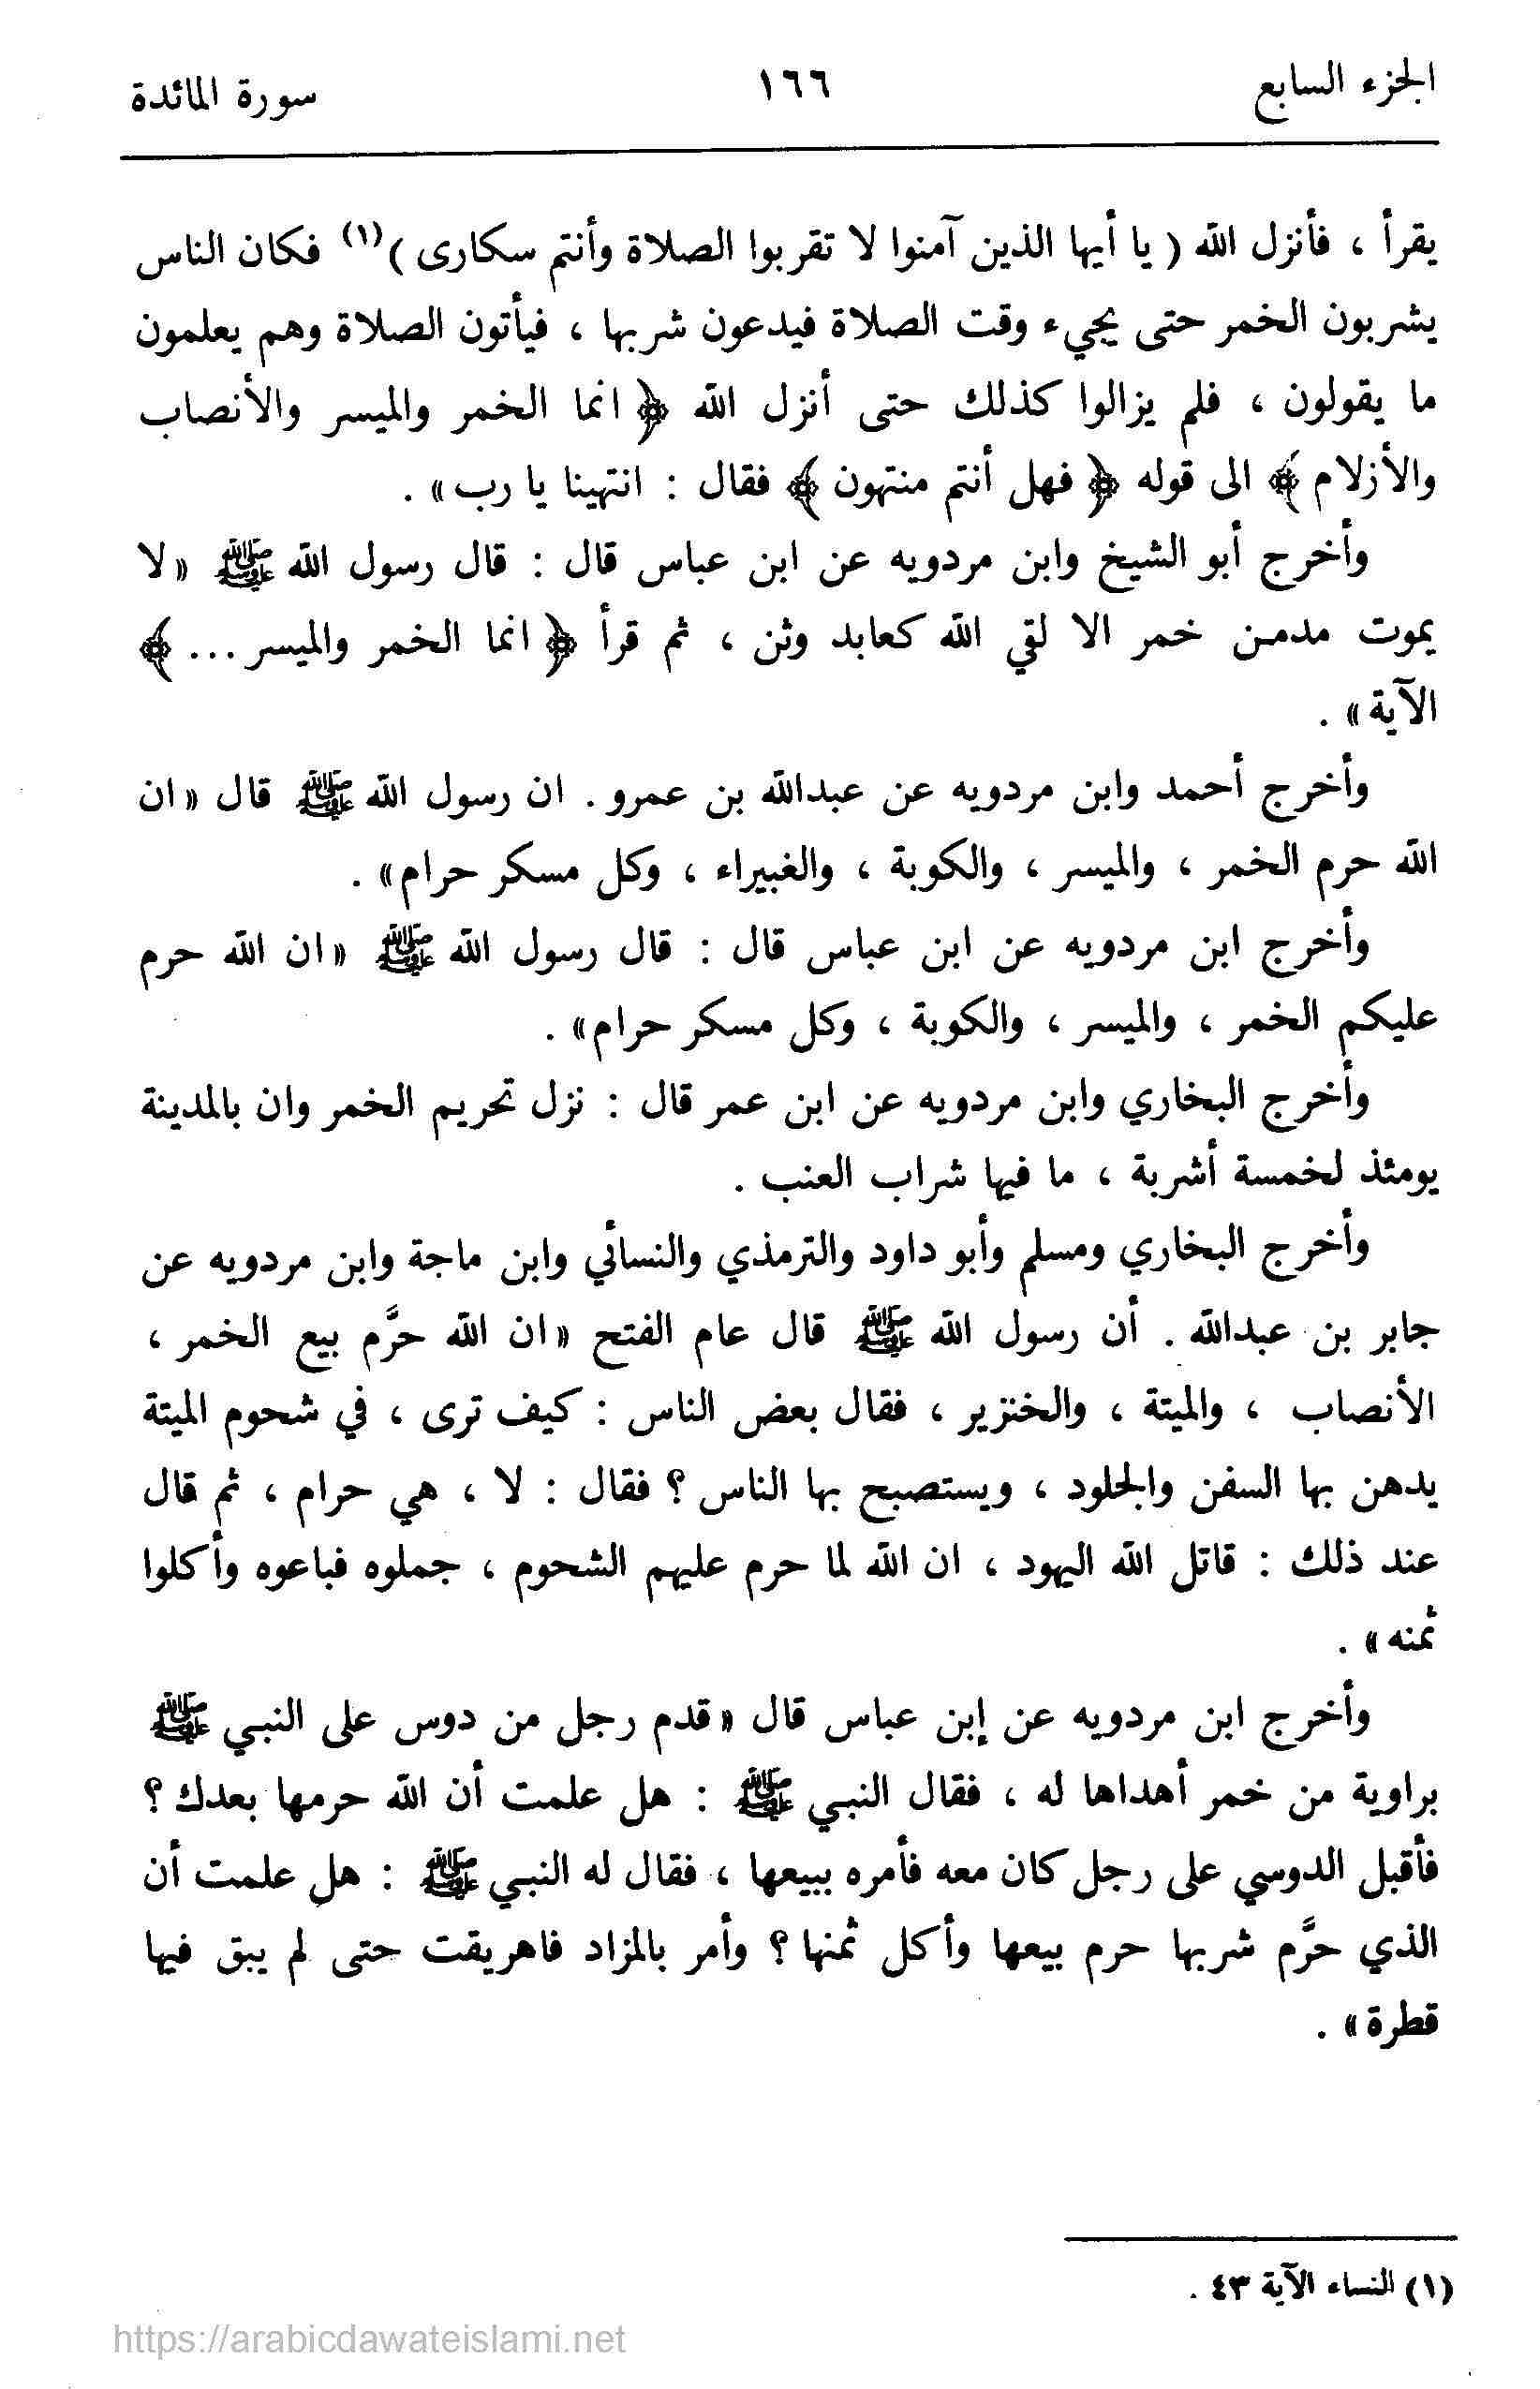 الجزء السابع ١٦٦ سورة المائدة
يقرأ ، فأنزل الله ( يا أيها الذين آمنوا لا تقربوا الصلاة وأنتم سكارى )(١) فكان الناس
يشربون الخمر حتى يجيء وقت الصلاة فيدعون شربها ، فيأتون الصلاة وهم يعلمون
ما يقولون ، فلم يزالوا كذلك حتى أنزل الله ﴿ انما الخمر والميسر والأنصاب
والأزلام ﴾ الى قوله ﴿ فهل أنتم منتهون ﴾ فقال : انتهينا يا رب» .
وأخرج أبو الشيخ وابن مردويه عن ابن عباس قال : قال رسول الله ﷺ «لا
يموت مدمن خمر الا لقي الله كعابد وثن ، ثم قرأ ﴿ انما الخمر والميسر ... ﴾
الآية» .
وأخرج أحمد وابن مردويه عن عبدالله بن عمرو . ان رسول الله ﷺ قال «ان
الله حرم الخمر ، والميسر ، والكوبة ، والغبيراء ، وكل مسكر حرام» .
وأخرج ابن مردويه عن ابن عباس قال : قال رسول الله ﷺ «ان الله حرم
عليكم الخمر ، والميسر ، والكوبة ، وكل مسكر حرام» .
وأخرج البخاري وابن مردويه عن ابن عمر قال : نزل تحريم الخمر وان بالمدينة
يومئذ لخمسة أشربة ، ما فيها شراب العنب .
وأخرج البخاري ومسلم وأبو داود والترمذي والنسائي وابن ماجة وابن مردويه عن
جابر بن عبدالله . أن رسول الله ﷺ قال عام الفتح «ان الله حرَّم بيع الخمر ،
الأنصاب ، والميتة ، والخنزير ، فقال بعض الناس : كيف ترى ، في شحوم الميتة
يدهن بها السفن والجلود ، ويستصبح بها الناس ؟ فقال : لا ، هي حرام ، ثم قال
عند ذلك : قاتل الله اليهود ، ان الله لما حرم عليهم الشحوم ، جملوه فباعوه وأكلوا
ثمنه» .
وأخرج ابن مردويه عن إبن عباس قال «قدم رجل من دوس على النبي ﷺ
براوية من خمر أهداها له ، فقال النبي ﷺ : هل علمت أن الله حرمها بعدك ؟
فأقبل الدوسي على رجل كان معه فأمره ببيعها ، فقال له النبي ﷺ : هل علمت أن
الذي حرَّم شربها حرم بيعها وأكل ثمنها ؟ وأمر بالمزاد فاهريقت حتى لم يبق فيها
قطرة» .
(١) النساء الآية ٤٣ .
https://arabicdawateislami.net